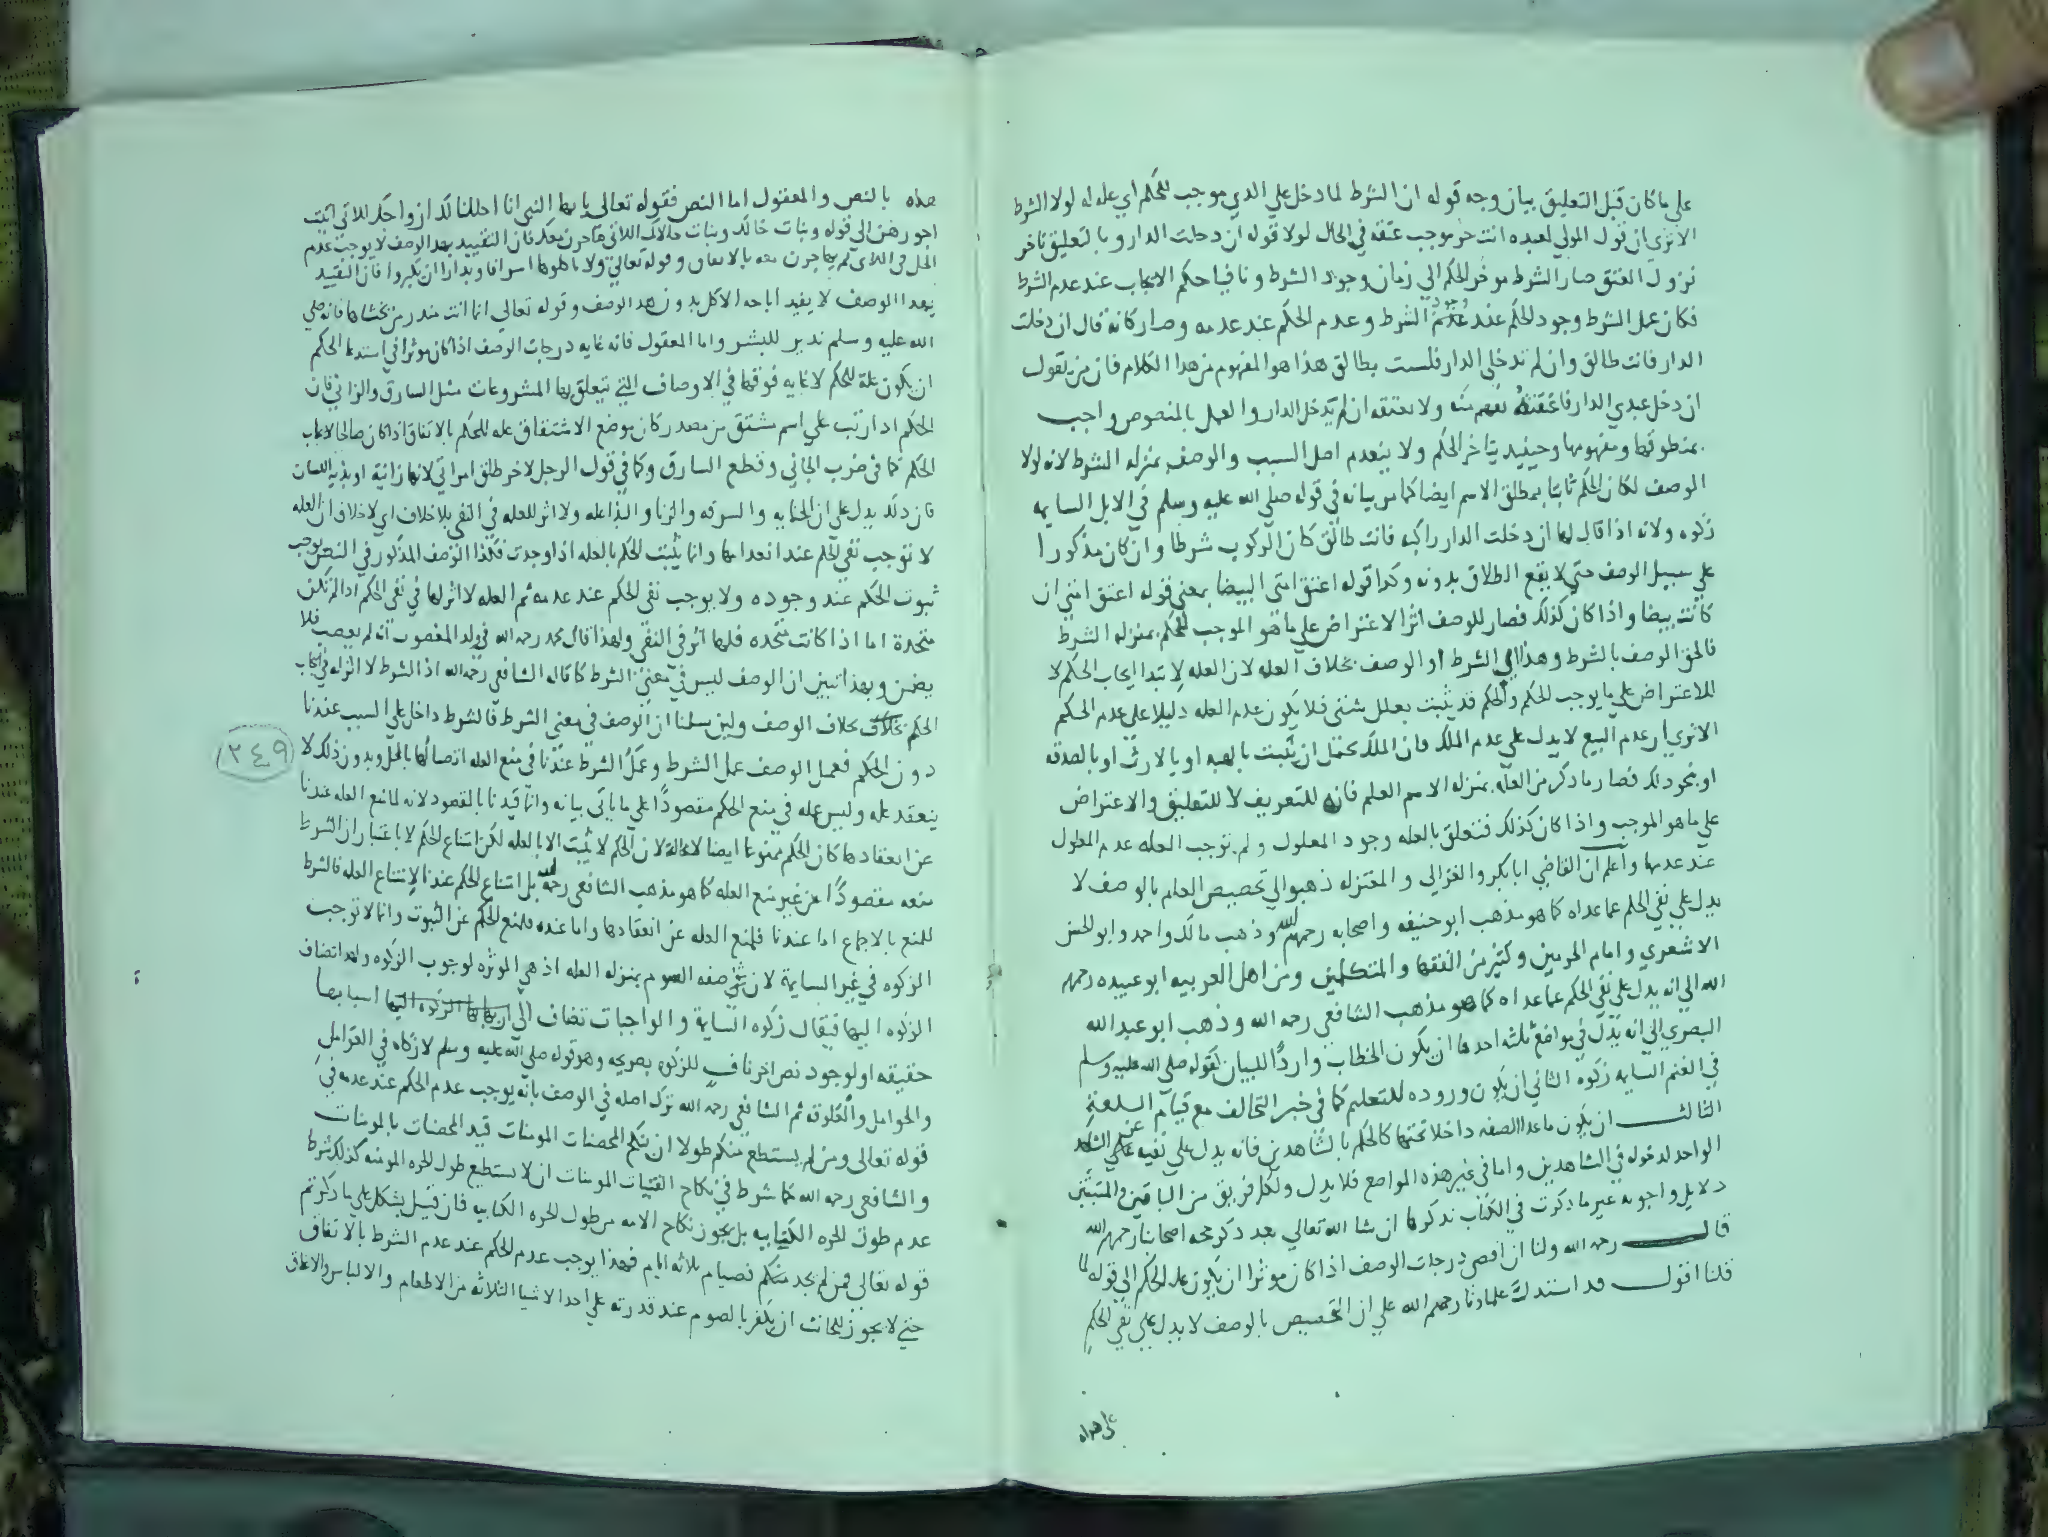 على ما كان قبل التعليق بيان وجه قوله ان الشرط لما دخل على الذي موجب للحكم اي عله له لولا الشرط
الا ترى ان قول المولى لعبده انت حر موجب عتقه في الحال لولا قوله ان دخلت الدار و بالتعليق تاخر
نزول العتق صار الشرط موخر الحكم الي زمان وجود الشرط و نافيا حكم الايجاب عند عدم الشرط
فكان عمل الشرط وجود الحكم عند وجود الشرط و عدم الحكم عند عدمه وصار كانه قال ان دخلت
الدار فانت طالق وان لم تدخلى الدار فلست بطالق هذا هو المفهوم من هذا الكلام فان من يقول
ان دخل عبدي الدار فاعتقه نفهم منه ولا تعتقه ان لم يدخل الدار والعمل بالمنصوص واجب
بمنطوقها ومفهومها وحينيد يتاخر الحكم ولا ينعدم اصل السبب والوصف بمنزله الشرط لانه لولا
الوصف لكان الحكم ثابتا بمطلق الاسم ايضا كما مر بيانه في قوله صلى الله عليه وسلم في الابل السايمه
زكوه ولانه اذا قال لها ان دخلت الدار راكبه فانت طالق كان الركوب شرطا وان كان مذكورا
على سبيل الوصف حتي لا يقع الطلاق بدونه وكدا قوله اعتق امتى البيضا بمعني قوله اعتق امتي ان
كانت بيضا واذا كان كذلك فصار للوصف اثر الاعتراض على ما هو الموجب للحكم بمنزله الشرط
فالحق الوصف بالشرط وهذا اي الشرط او الوصف بخلاف العله لان العله لابتدا ايجاب الحكم لا
للاعتراض على ما يوجب الحكم والحكم قد يثبت بعلل شتى فلا يكون عدم العله دليلا على عدم الحكم
الا ترى ان عدم البيع لا يدل على عدم الملك فان الملك يحتمل ان يثبت بالهبه او بالارث او بالصدقه
او نحو ذلك فصار ما ذكر من العله بمنزله الاسم العلم فانه للتعريف لا للتعليق والاعتراض
على ما هو الموجب واذا كان كذلك فتتعلق بالعله وجود المعلول ولم توجب العله عدم المعلول
عند عدمها واعلم ان القاضي ابا بكر والغزالى والمعتزله ذهبوا الي تخصيص العلم بالوصف لا
يدل على نفي الحكم عما عداه كما هو مذهب ابو حنيفه واصحابه رحمهم الله وذهب مالك واحمد وابو الحسن
الاشعري وامام الحرمين وكثير من الفقها والمتكلمين ومن اهل العربيه ابو عبيده رحمهم
الله الي انه يدل على نفي الحكم عما عداه كما هو مذهب الشافعي رحمه الله وذهب ابو عبد الله
البصري الي انه يدل في مواضع ثلثه احدها ان يكون الخطاب واردا للبيان كقوله صلى الله عليه وسلم
في الغنم السايمه زكوه الثاني ان يكون وروده للتعليم كما في خبر التحالف مع قيام السلعة
الثالث ان يكون ما عدا الصفه داخلا تحتها كالحكم بالشاهدين فانه يدل على نفيه عن الشاهد
الواحد لدخوله في الشاهدين واما في غير هذه المواضع فلا يدل ولكل فريق من النافين والمثبتين
دلايل واجوبه غير ما ذكرت في الكتاب نذكرها ان شا الله تعالي بعد ذكر حجه اصحابنا رحمهم الله
قال رحمه الله ولنا ان اقصى درجات الوصف اذا كان موثرا ان يكون عله الحكم الي قوله لما
قلنا اقول قد استدل علماونا رحمهم الله على ان التخصيص بالوصف لا يدل على نفي الحكم
عما عداه
عداه بالنص والمعقول اما النص فقوله تعالي يا يها النبي انا احللنا لك ازواجك اللاتي اتيت
اجورهن الى قوله وبنات خالك وبنات خالاتك اللاتي هاجرن معك فان التقييد بهذا الوصف لا يوجب عدم
الحل في اللاتى لم يهاجرن معه بالاتفاق وقوله تعالى ولا تاكلوها اسرافا وبدارا ان يكبروا فان التقييد
بهذا الوصف لا يفيد اباحه الاكل بدون هذا الوصف وقوله تعالي انما انت منذر من يخشاها فانه صلى
الله عليه وسلم نذير للبشر واما المعقول فانه غايه درجات الوصف اذا كان موثرا في استدعا الحكم
ان يكون علة للحكم لا غايه فوقها في الاوصاف التي تتعلق بها المشروعات مثل السارق والزاني فان
الحكم اذا رتب على اسم مشتق من مصدر كان موضع الاشتقاق عله للحكم بالاتفاق اذا كان صالحا لايجاب
الحكم كما في ضرب الجاني وقطع السارق وكما في قول الرجل لاخر طلق امراتي لانها زانية او بذيه اللسان
فان ذلك يدل على ان الجنايه والسرقه والزنا والبذا عله ولا اثر للعله في النفي بلا خلاف اي لا خلاف ان العله
لا توجب نفي الحكم عند انعدامها وانما يثبت الحكم بالعله اذا وجدت فكذا الوصف المذكور في النص يوجب
ثبوت الحكم عند وجوده ولا يوجب نفى الحكم عند عدمه ثم العله لا اثر لها في نفى الحكم اذا لم تكن
متحدة اما اذا كانت متحده فلها اثر في النفي ولهذا قال محمد رحمه الله في ولد المغصوب انه لم يغصب فلا
يضمن وبهذا تبين ان الوصف ليس في معني الشرط كما قاله الشافعي رحمه الله اذ الشرط لا اثر له في ايجاب
الحكم بخلاف الوصف ولين سلمنا ان الوصف في معنى الشرط فالشرط داخل على السبب عندنا
دون الحكم فعمل الوصف عمل الشرط وعمل الشرط عندنا في منع العله اتصالها بالمحل وبدون ذلك لا
ينعقد عله وليس عمله في منع الحكم مقصودا على ما ياتى بيانه وانما قيدنا بالمقصود لانه لما منع العله عندنا
عن انعقادها كان الحكم ممنوعا ايضا لا محالة لان الحكم لا يثبت الا بالعله لكن امتناع الحكم لا باعتبار ان الشرط
منعه مقصودا من غير منع العله كما هو مذهب الشافعى رحمه الله بل امتناع الحكم عندنا لامتناع العله فالشرط
للمنع بالاجماع اما عندنا فلمنع العله عن انعقادها واما عنده فلمنع الحكم عن الثبوت وانما لا توجب
الزكوه في غير السايمة لان صفه السوم بمنزله العله اذ هي الموثره لوجوب الزكوه ولهذا تضاف
الزكوه اليها فيقال زكوه السايمة والواجبات تضاف الى اسبابها
حقيقه او لوجود نص اخر ناف للزكوه بصريحه وهو قوله صلى الله عليه وسلم لا زكاه في العوامل
والحوامل والعلوفه ثم الشافعي رحمه الله ترك اصله في الوصف بانه يوجب عدم الحكم عند عدمه في
قوله تعالى ومن لم يستطع منكم طولا ان ينكح المحصنات المومنات قيد المحصنات بالمومنات
والشافعي رحمه الله ما شرط في نكاح الفتيات المومنات ان لا يستطيع طول الحره المومنه كذلك شرط
عدم طول الحره الكتابيه بل يجوز نكاح الامه مع طول الحره الكتابيه فان قيل يشكل على ما ذكرتم
قوله تعالي فمن لم يجد منكم فصيام ثلاثه ايام فهذا يوجب عدم الحكم عند عدم الشرط بالاتفاق
حتي لا يجوز للحانث ان يكفر بالصوم عند قدرته على احد الاشيا الثلاثه من الاطعام والالباس والاعتاق
٢٤٩